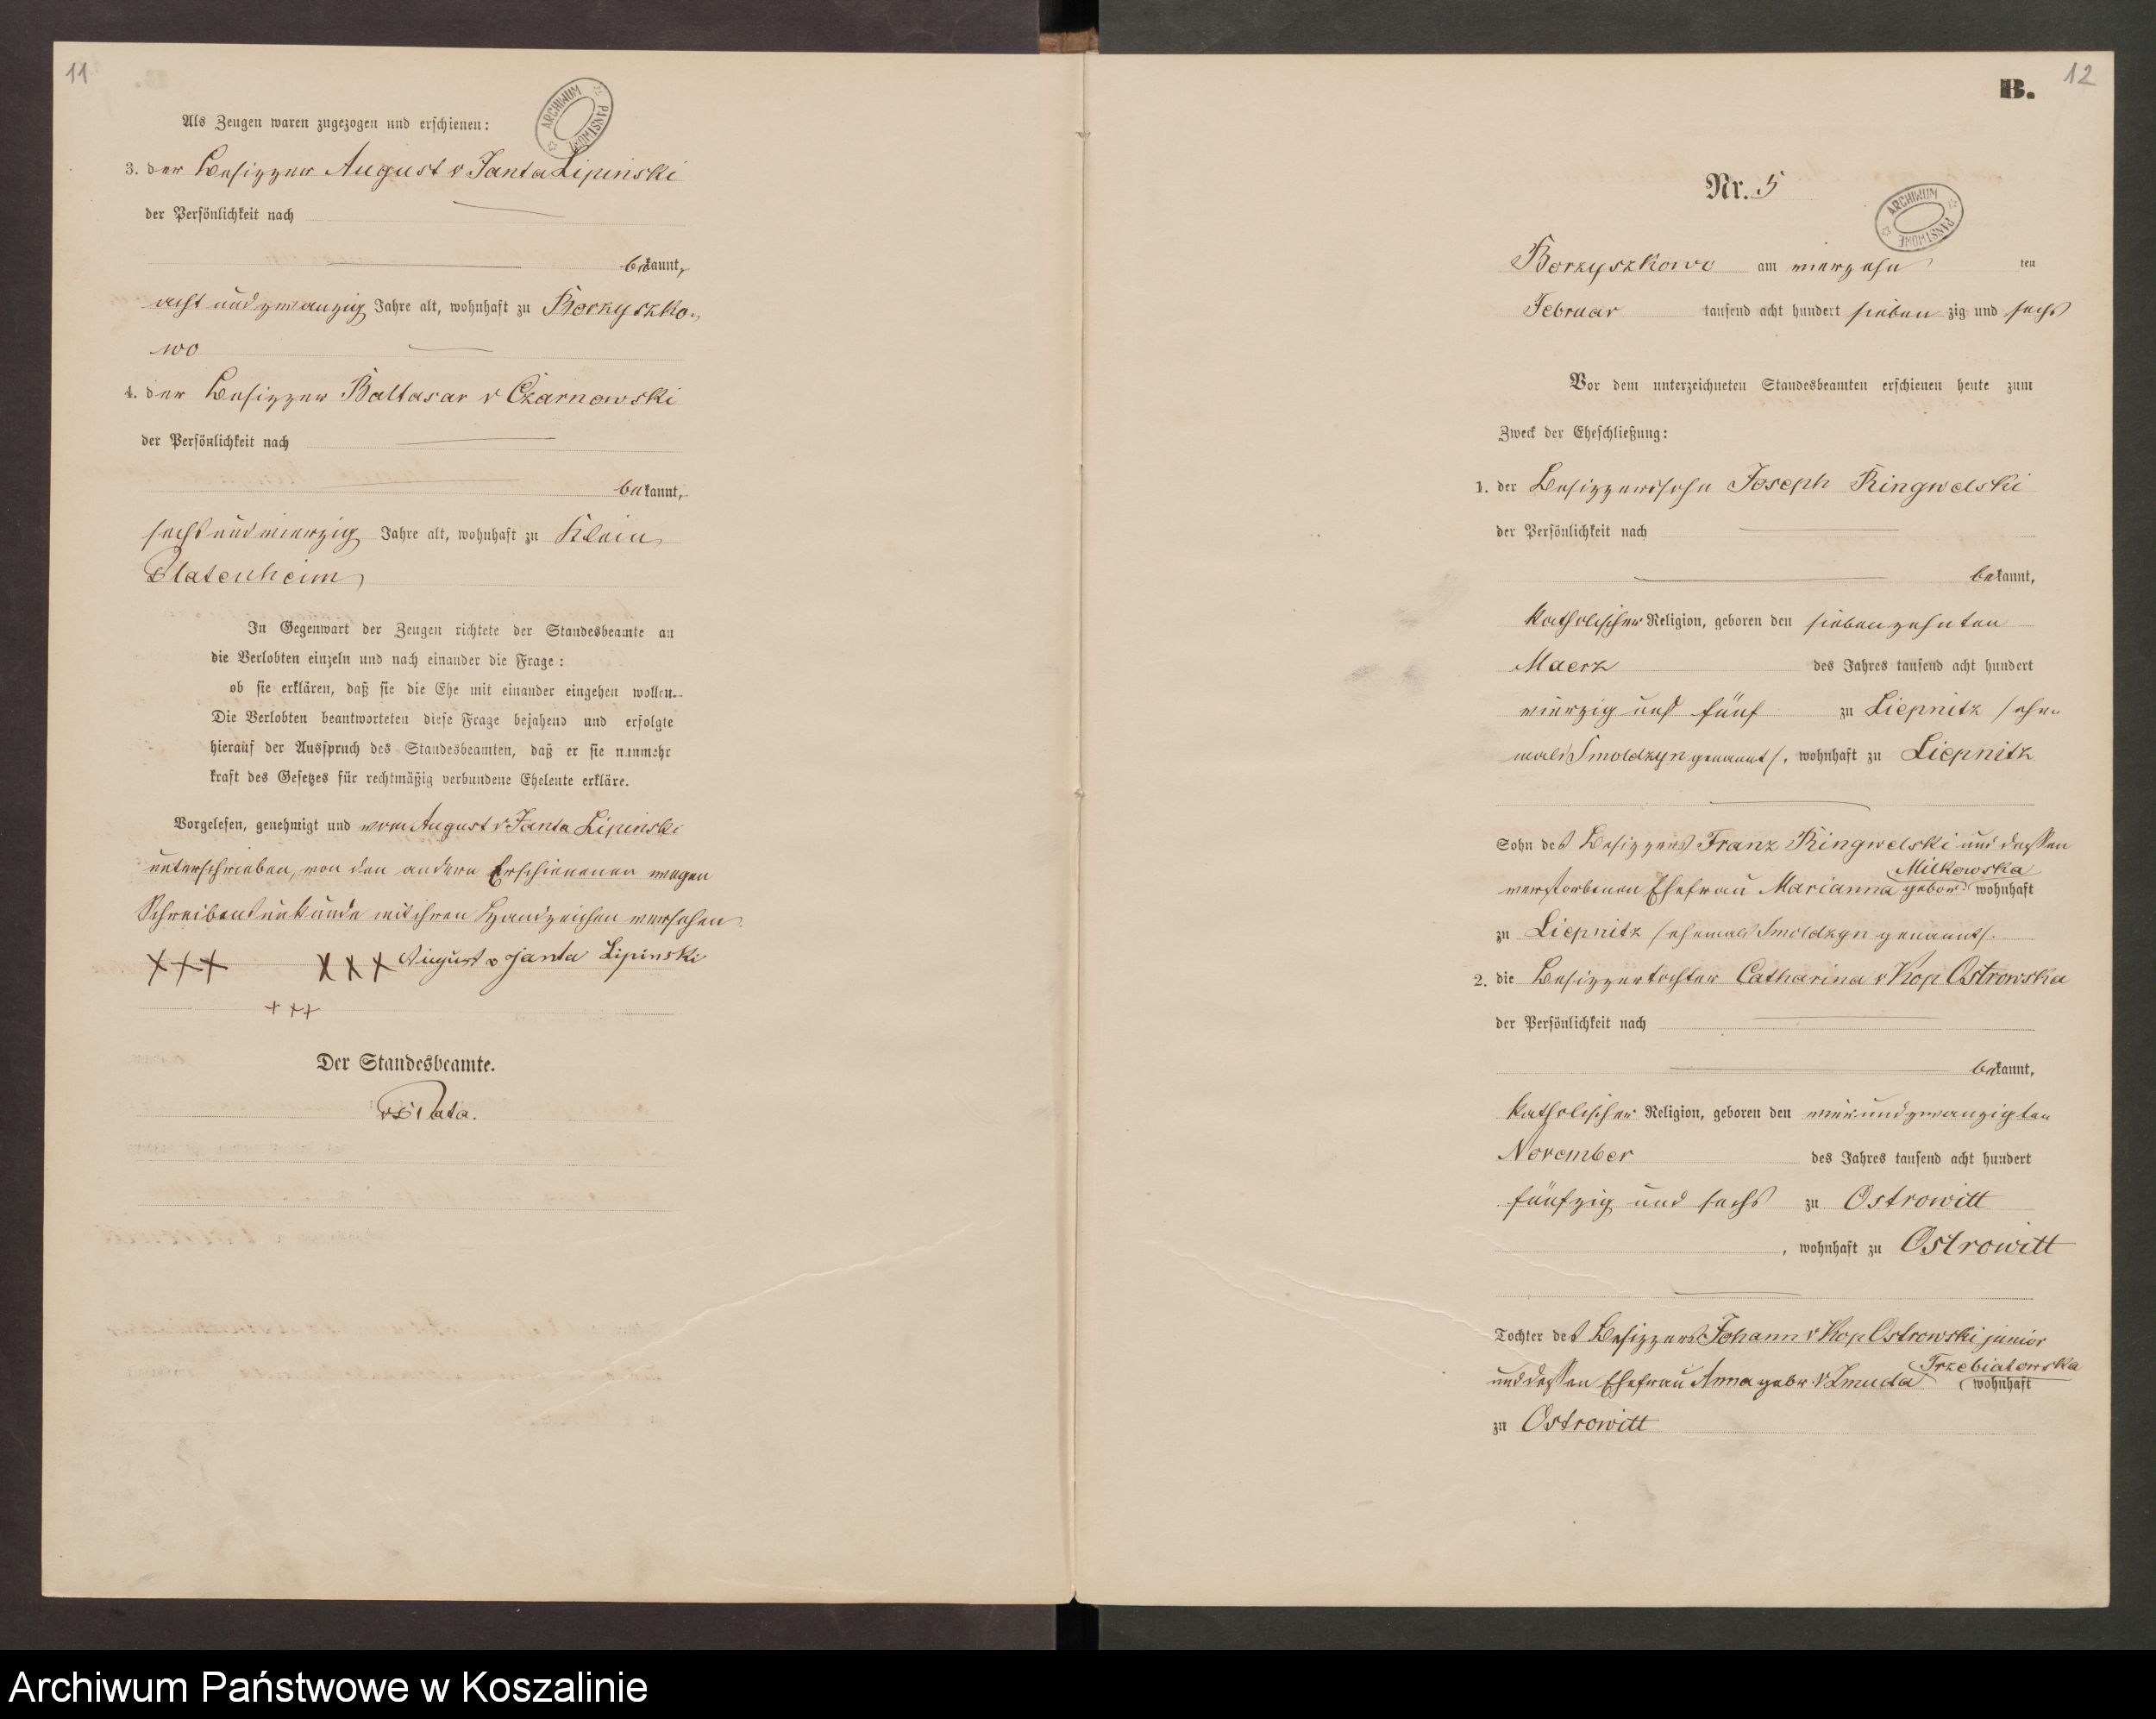 11
Als Zeugen waren zugezogen und erschienen:
ARCHIWUM PAŃSTWOWE
3. der Besizzer August v Janta Lipinski
der Persönlichkeit nach
bekannt,
acht und zwanzig Jahre alt, wohnhaft zu Borzyszko-
wo
4. der Besizzer Baltasar v Czarnowski
der Persönlichkeit nach
bekannt,
sechs und vierzig Jahre alt, wohnhaft zu Klein
Platenheim
In Gegenwart der Zeugen richtete der Standesbeamte an
die Verlobten einzeln und nach einander die Frage:
ob sie erklären, daß sie die Ehe mit einander eingehen wollen.
Die Verlobten beantworteten diese Frage bejahend und erfolgte
hierauf der Ausspruch des Standesbeamten, daß er sie nunmehr
kraft des Gesetzes für rechtmäßig verbundene Eheleute erkläre.
Vorgelesen, genehmigt und vom August v Janta Lipinski
unterschrieben, von den andern Erschienenen wegen
Schreibensunkunde mit ihren Handzeichen versehen.
+++ xxx August v Janta Lipinski
+++
Der Standesbeamte.
B.
12
Nr. 5
ARCHIWUM PAŃSTWOWE
Borzyszkowo am vierzehn ten
Februar tausend acht hundert sieben zig und sechs
Vor dem unterzeichneten Standesbeamten erschienen heute zum
Zweck der Eheschließung:
1. der Besizzerssohn Joseph Ringwelski
der Persönlichkeit nach
bekannt,
katholischer Religion, geboren den siebenzehnten
Maerz des Jahres tausend acht hundert
vierzig und fünf zu Liepnitz /ehe-
mals Smoldzyn genannt/, wohnhaft zu Liepnitz
Sohn des Besizzers Franz Ringwelski und dessen
verstorbenen Ehefrau Marianna gebor. Milkowska wohnhaft
zu Liepnitz /ehemals Smoldzyn genannt/.
2. die Besizzertochter Catharina v Kop Ostrowska
der Persönlichkeit nach
bekannt,
katholischer Religion, geboren den vier und zwanzigten
November des Jahres tausend acht hundert
fünfzig und sechs zu Ostrowitt
, wohnhaft zu Ostrowitt
Tochter des Besizzers Johann v Kop Ostrowski junior
und dessen Ehefrau Anna gebor v Zmuda Trzebiatowska wohnhaft
zu Ostrowitt
Archiwum Państwowe w Koszalinie